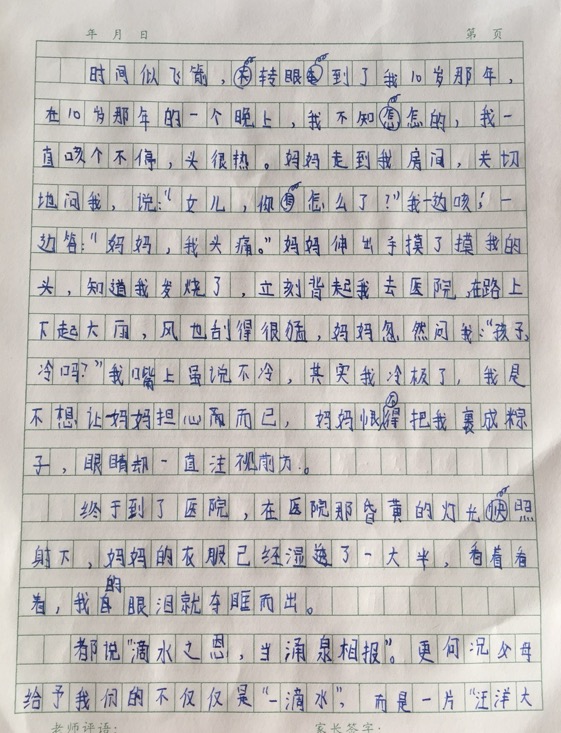 年 月 日 第 页
时间似飞箭，转眼到了我10岁那年，
在10岁那年的一个晚上，我不知怎怎的，我一
直咳个不停，头很热。妈妈走到我房间，关切
地问我，说："女儿，你怎么了？"我一边咳，一
边答："妈妈，我头痛。"妈妈伸出手摸了摸我的
头，知道我发烧了，立刻背起我去医院，在路上
下起大雨，风也刮得很猛，妈妈忽然问我："孩子，
冷吗？"我嘴上虽说不冷，其实我冷极了，我是
不想让妈妈担心而而已，妈妈恨不得把我裹成粽
子，眼睛却一直注视前方。
终于到了医院，在医院那昏黄的灯光照
射下，妈妈的衣服已经湿透了一大半，看着看
着，我的眼泪就夺眶而出。
都说"滴水之恩，当涌泉相报"。更何况父母
给予我们的不仅仅是"一滴水"，而是一片"汪洋大
老师评语： 家长签字：